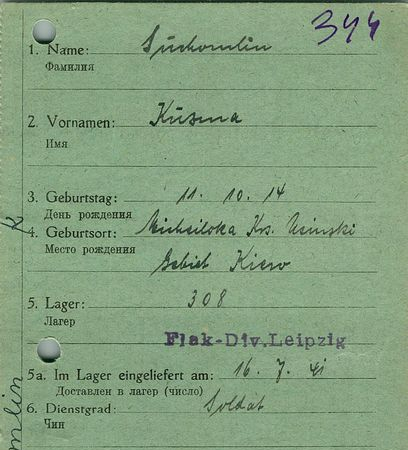 344
1. Name: Suchomlin
Фамилия
2. Vornamen: Kusma
Имя
3. Geburtstag: 11. 10. 14
День рождения
4. Geburtsort: Krs.
Место рождения
Gebiet Kiew
5. Lager: 308
Лагер
Flak-Div.Leipzig
5a. Im Lager eingeliefert am: 16. 7. 41
Доставлен в лагер (число)
6. Dienstgrad: Soldat
Чин
mlin